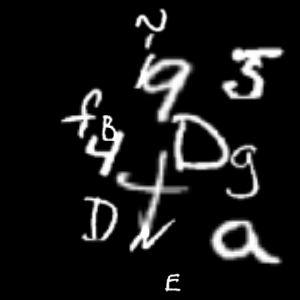 N
i 9 5
f B
4 D g
t
D N a
E